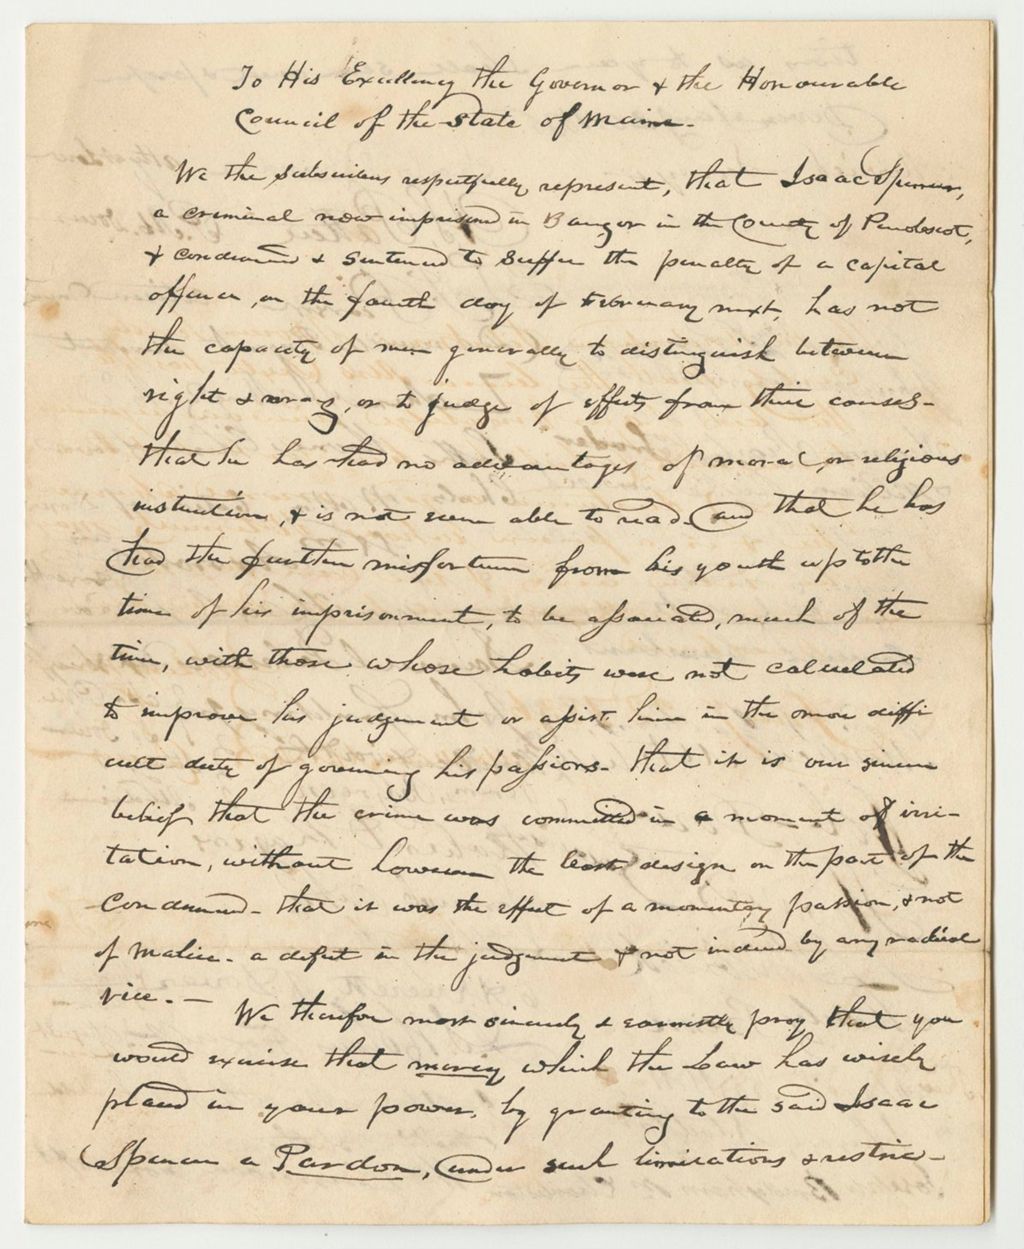 To His Excellency the Governor & the Honourable
Council of the State of Maine.
We the Subscribers respectfully represent, that Isaac Spencer,
a criminal now imprisoned in Bangor in the County of Penobscot,
& condemned & sentenced to suffer the penalty of a capital
offence, on the fourth day of February next, has not
the capacity of men generally to distinguish between
right & wrong, or to judge of effects from their causes-
that he has had no advantages of moral, or religious
instruction, & is not even able to read. and that he has
had the further misfortune from his youth up to the
time of his imprisonment, to be associated, much of the
time, with those whose habits were not calculated
to improve his judgement or assist him in the more diffi
cult duty of governing his passions- that it is our sincere
belief that the crime was committed in a moment of irri-
tation, without however the least design on the part of the
condemned- that it was the effect of a momentary passion, & not
of malice- a defect in the judgment & not indeed by any radical
vice.-
We therefore most sincerely & earnestly pray that you
would exercise that mercy which the Law has wisely
placed in your power, by granting to the said Isaac
Spencer a Pardon, under such limitations & restric-